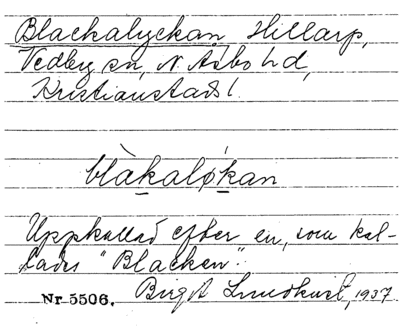 Blackalyckan, Hillarp,
Vedby sn, N. Åsbo hd,
Kristianstads l.
blàkaløkan
Uppkallad efter en, som kal-
lades "Blacken".
Nr 5506. Birgit Lundkvist, 1937